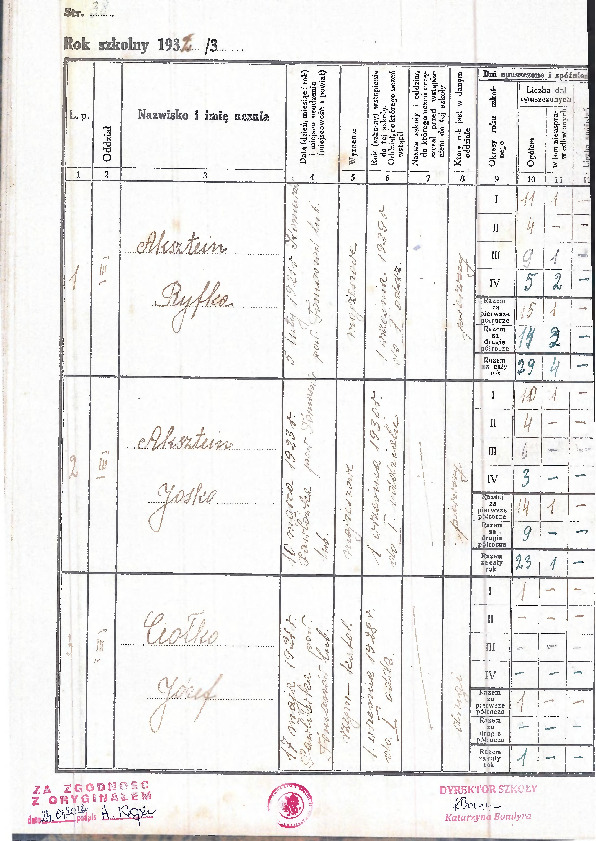 Str.
Rok szkolny 1932/3
L. p.
Oddział
Nazwisko i imię ucznia
Data (dzień, miesiąc i rok) i miejsce urodzenia (miejscowość i powiat)
Wyznanie
Nazwa szkoły i oddziału, do którego uczeń uczęszczał przed wstąpieniem do tej szkoły
Który rok jest w danym oddziale
Okresy roku szkolnego
Dni opuszczone i spóźnie
Liczba dni opuszczonych
Ogółem
1 2 3 4 5 6 7 8 9 10 11
1
III
Aksztein
Ryfka
pow. Tomaszów lub.
mojżeszowe
1 września 1929 r.
pierwszy
I 11 1 -
II 4 - -
III 9 1 -
IV 5 2 -
Razem za pierwsze półrocze 15 1 -
Razem za drugie półrocze 14 2 -
Razem za cały rok 29 4 -
2
III
Aksztein
Joska
10 marca 1923 r.
Pawłówka pow. Tomaszów
lub.
mojżeszowe
1 września 1930 r.
do I oddziału
pierwszy
I 10 1 -
II 4 - -
III 6 - -
IV 3 - -
Razem za pierwsze półrocze 14 1 -
Razem za drugie półrocze 9 - -
Razem za cały rok 23 1 -
3
III
Ciołko
Józef
17 maja 1921 r.
Pawłówka pow.
Tomaszów lub.
rzym-katol.
1 września 1928 r.
do I oddz.
drugi
I 1 - -
II - - -
III - - -
IV - - -
Razem za pierwsze półrocze 1 - -
Razem za drugie półrocze - - -
Razem za cały rok 1 - -
ZA ZGODNOŚĆ
Z ORYGINAŁEM
data podpis
DYREKTOR SZKOŁY
Katarzyna Bondyra